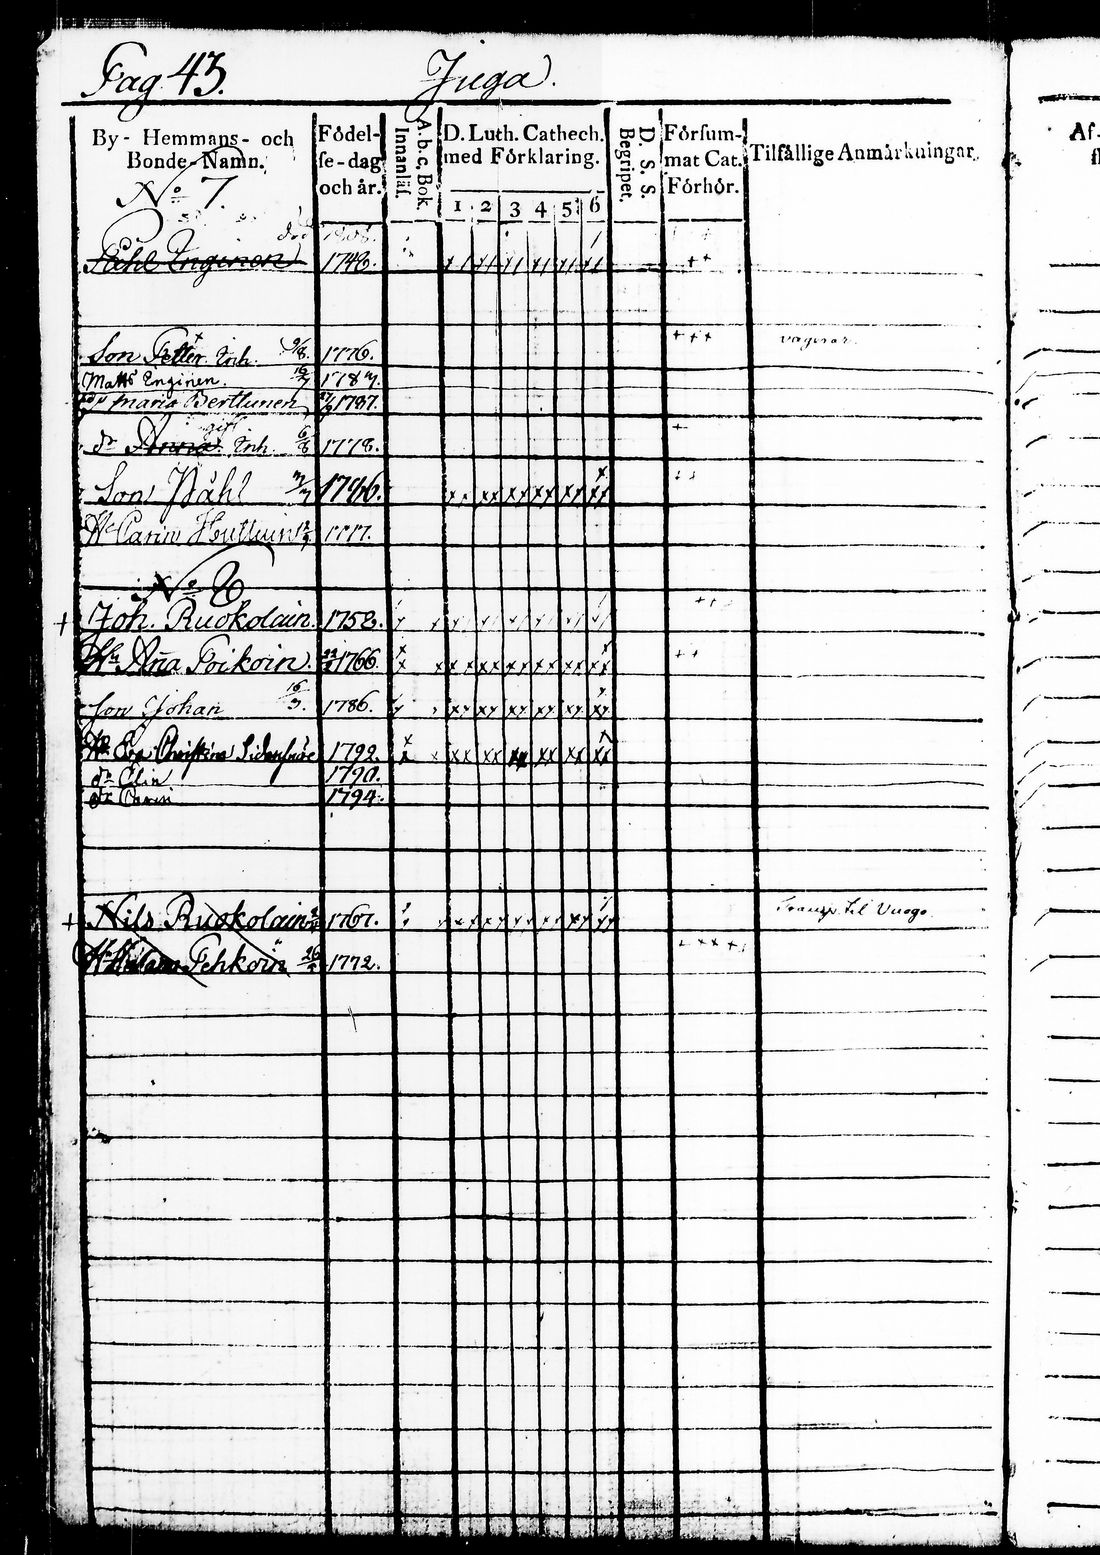 Pag 43. Juga.
By- Hemmans- och Bonde-Namn. Födel- se-dag och år. Innanläs. A.b.c. Bok D. Luth. Cathech. med Förklaring. 1 2 3 4 5 6 D. S. S. Begripet. Försum- mat Cat. Förhör. Tilfällige Anmärkningar.
No 7.
död 1808.
Påhl Enginen 1748.
Son Petter Enh. 9/8. 1776.
Matts Enginen. 16/7 1787.
Maria Berttunen 1787.
dr Anna Enh. 6/8 1778.
gift
Son Påhl 1746.
H. Carin Huttuin 1777.
No 8
+ Joh. Ruokolain. 1758.
Hu Aña Poikoin. 1766.
Son Johan 16/3. 1786.
Hu Eva Christina 1792.
dr Elin 1790.
dr Carin 1794.
+ Nils Ruokolain 1767. Transp. til Vuogo.
Pehkoin 26 1772.
Af-